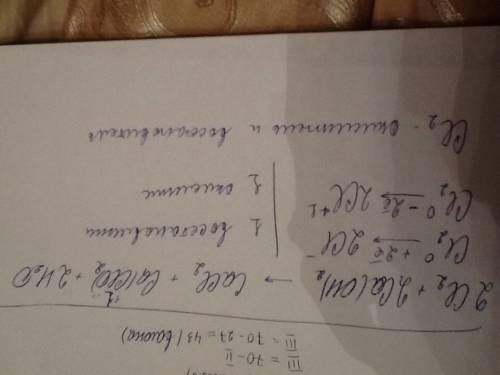 III = 70 - II
III = 70 - 27 = 43 (вагона)
2Cl₂ + 2Ca(OH)₂ → CaCl₂ + Ca(ClO)₂ + 2H₂O
Cl₂⁰ +2e̅ → 2Cl⁻ | 1 восстановитель
Cl₂⁰ -2e̅ → 2Cl⁺¹ | 1 окислитель
Cl₂ - окислитель и восстановитель